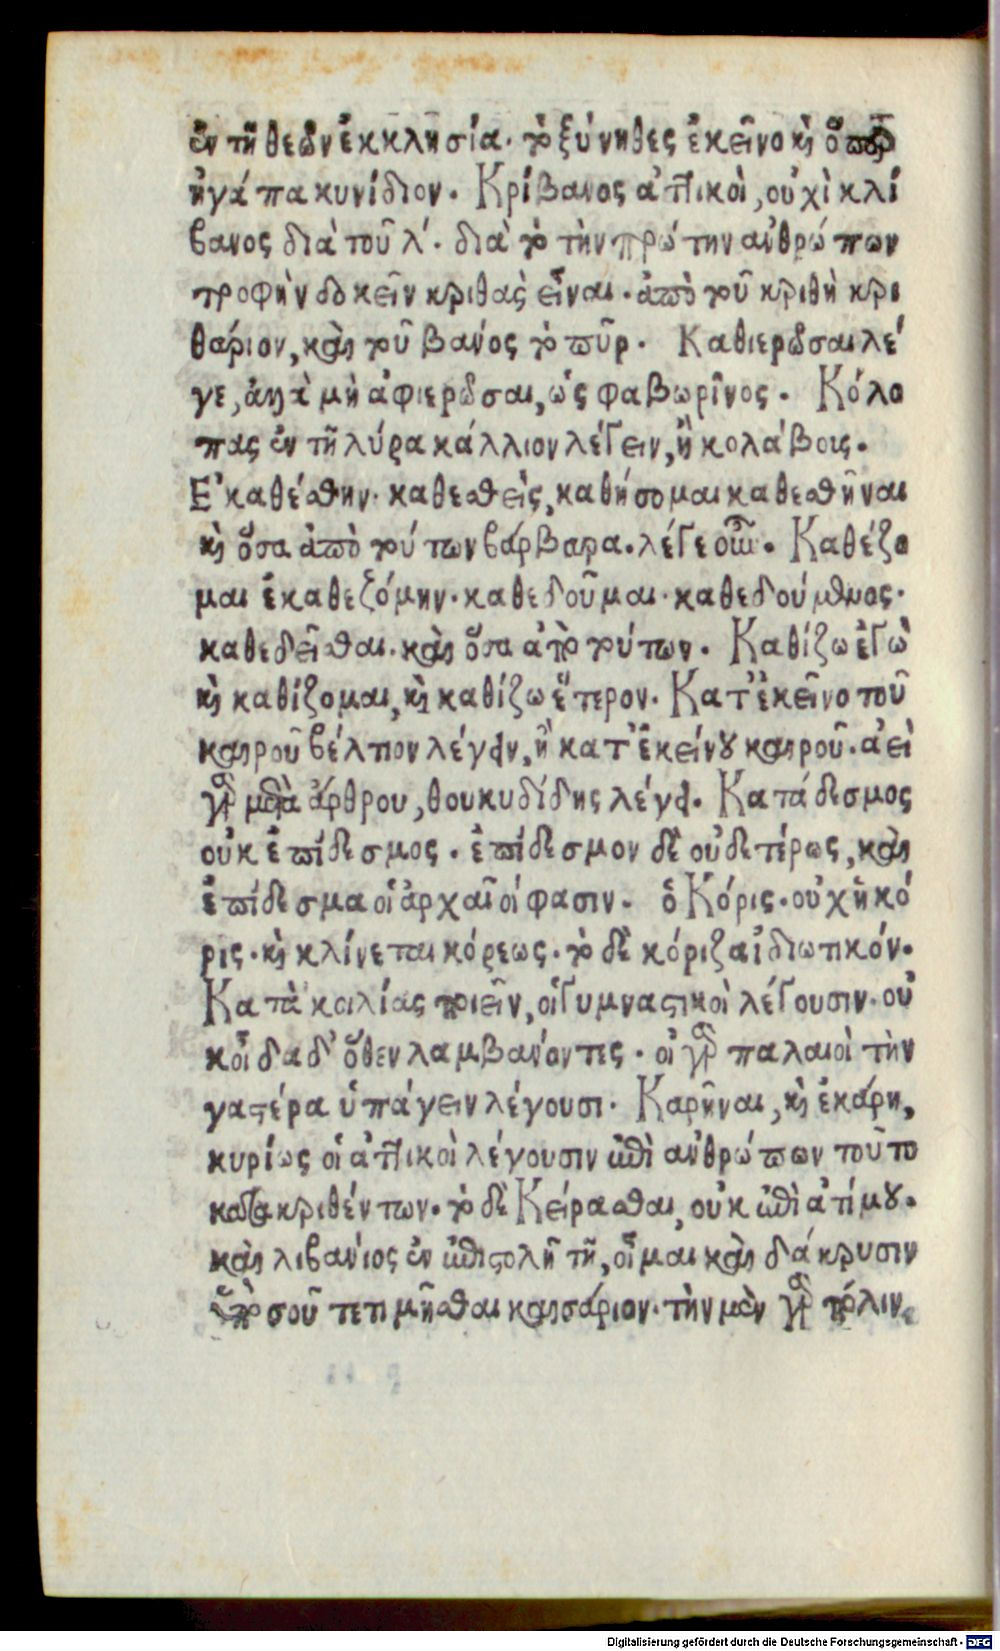 ἐν τῇ θεῶν ἐκκλησίᾳ. τὸ ξύνηθες ἐκεῖνο καὶ ὅπερ
ἠγάπα κυνίδιον. Κρίβανος ἀττικοὶ, οὐχὶ κλί
βανος διὰ τοῦ λ´. διὰ τὸ τὴν πρώτην ἀνθρώπων
τροφὴν δοκεῖν κριθὰς εἶναι. ἀπὸ τοῦ κριθὴ κρι
θάριον, καὶ τοῦ βανός τὸ πῦρ. Καθιερῶσαι λέ
γε, ἀλλὰ μὴ ἀφιερῶσαι, ὡς φαβωρῖνος. Κόλο
πας ἐν τῇ λύρα κάλλιον λέγειν, ἢ κολάβοις.
Ἐκαθέσθην. καθεσθεὶς, καθήσομαι καθεσθῆναι
καὶ ὅσα ἀπὸ τούτων βάρβαρα. λέγε οὖν. Καθέζο
μαι ἐκαθεζόμην. καθεδοῦμαι. καθεδούμενος.
καθεδεῖσθαι. καὶ ὅσα ἀπὸ τούτων. Καθίζω ἐγὼ
καὶ καθίζομαι, καὶ καθίζω ἕτερον. Κατ' ἐκεῖνο τοῦ
καιροῦ βέλτιον λέγειν, ἢ κατ' ἐκείνου καιροῦ. ἀεὶ
γὰρ μετὰ ἄρθρου, θουκυδίδης λέγει. Κατάδεσμος
οὐκ ἐπίδεσμος. ἐπίδεσμον δὲ οὐδετέρως, καὶ
ἐπίδεσμα οἱ ἀρχαῖοί φασιν. ὁ Κόρις. οὐχ ἡ κό
ρις. καὶ κλίνεται κόρεως. τὸ δὲ κόριζα ἰδιωτικόν.
Κατὰ κοιλίας ποιεῖν, οἱ γυμναστικοὶ λέγουσιν. οὐ
κ οἶδα δ' ὅθεν λαμβάνοντες. οἱ γὰρ παλαιοὶ τὴν
γαστέρα ὑπάγειν λέγουσι. Καρῆναι, καὶ ἐκάρη,
κυρίως οἱ ἀττικοὶ λέγουσιν ἐπὶ ἀνθρώπων τοῦτο
κατακριθέντων. τὸ δὲ Κείρασθαι, οὐκ ἐπὶ ἀτίμου.
καὶ λιβανίος ἐν ἐπιστολῇ τῇ, οἶμαι καὶ δάκρυσιν
ὑπὸ σοῦ τετιμῆσθαι καισάριον. τὴν μὲν γὰρ πόλιν.
Digitalisierung gefördert durch die Deutsche Forschungsgemeinschaft - DFG